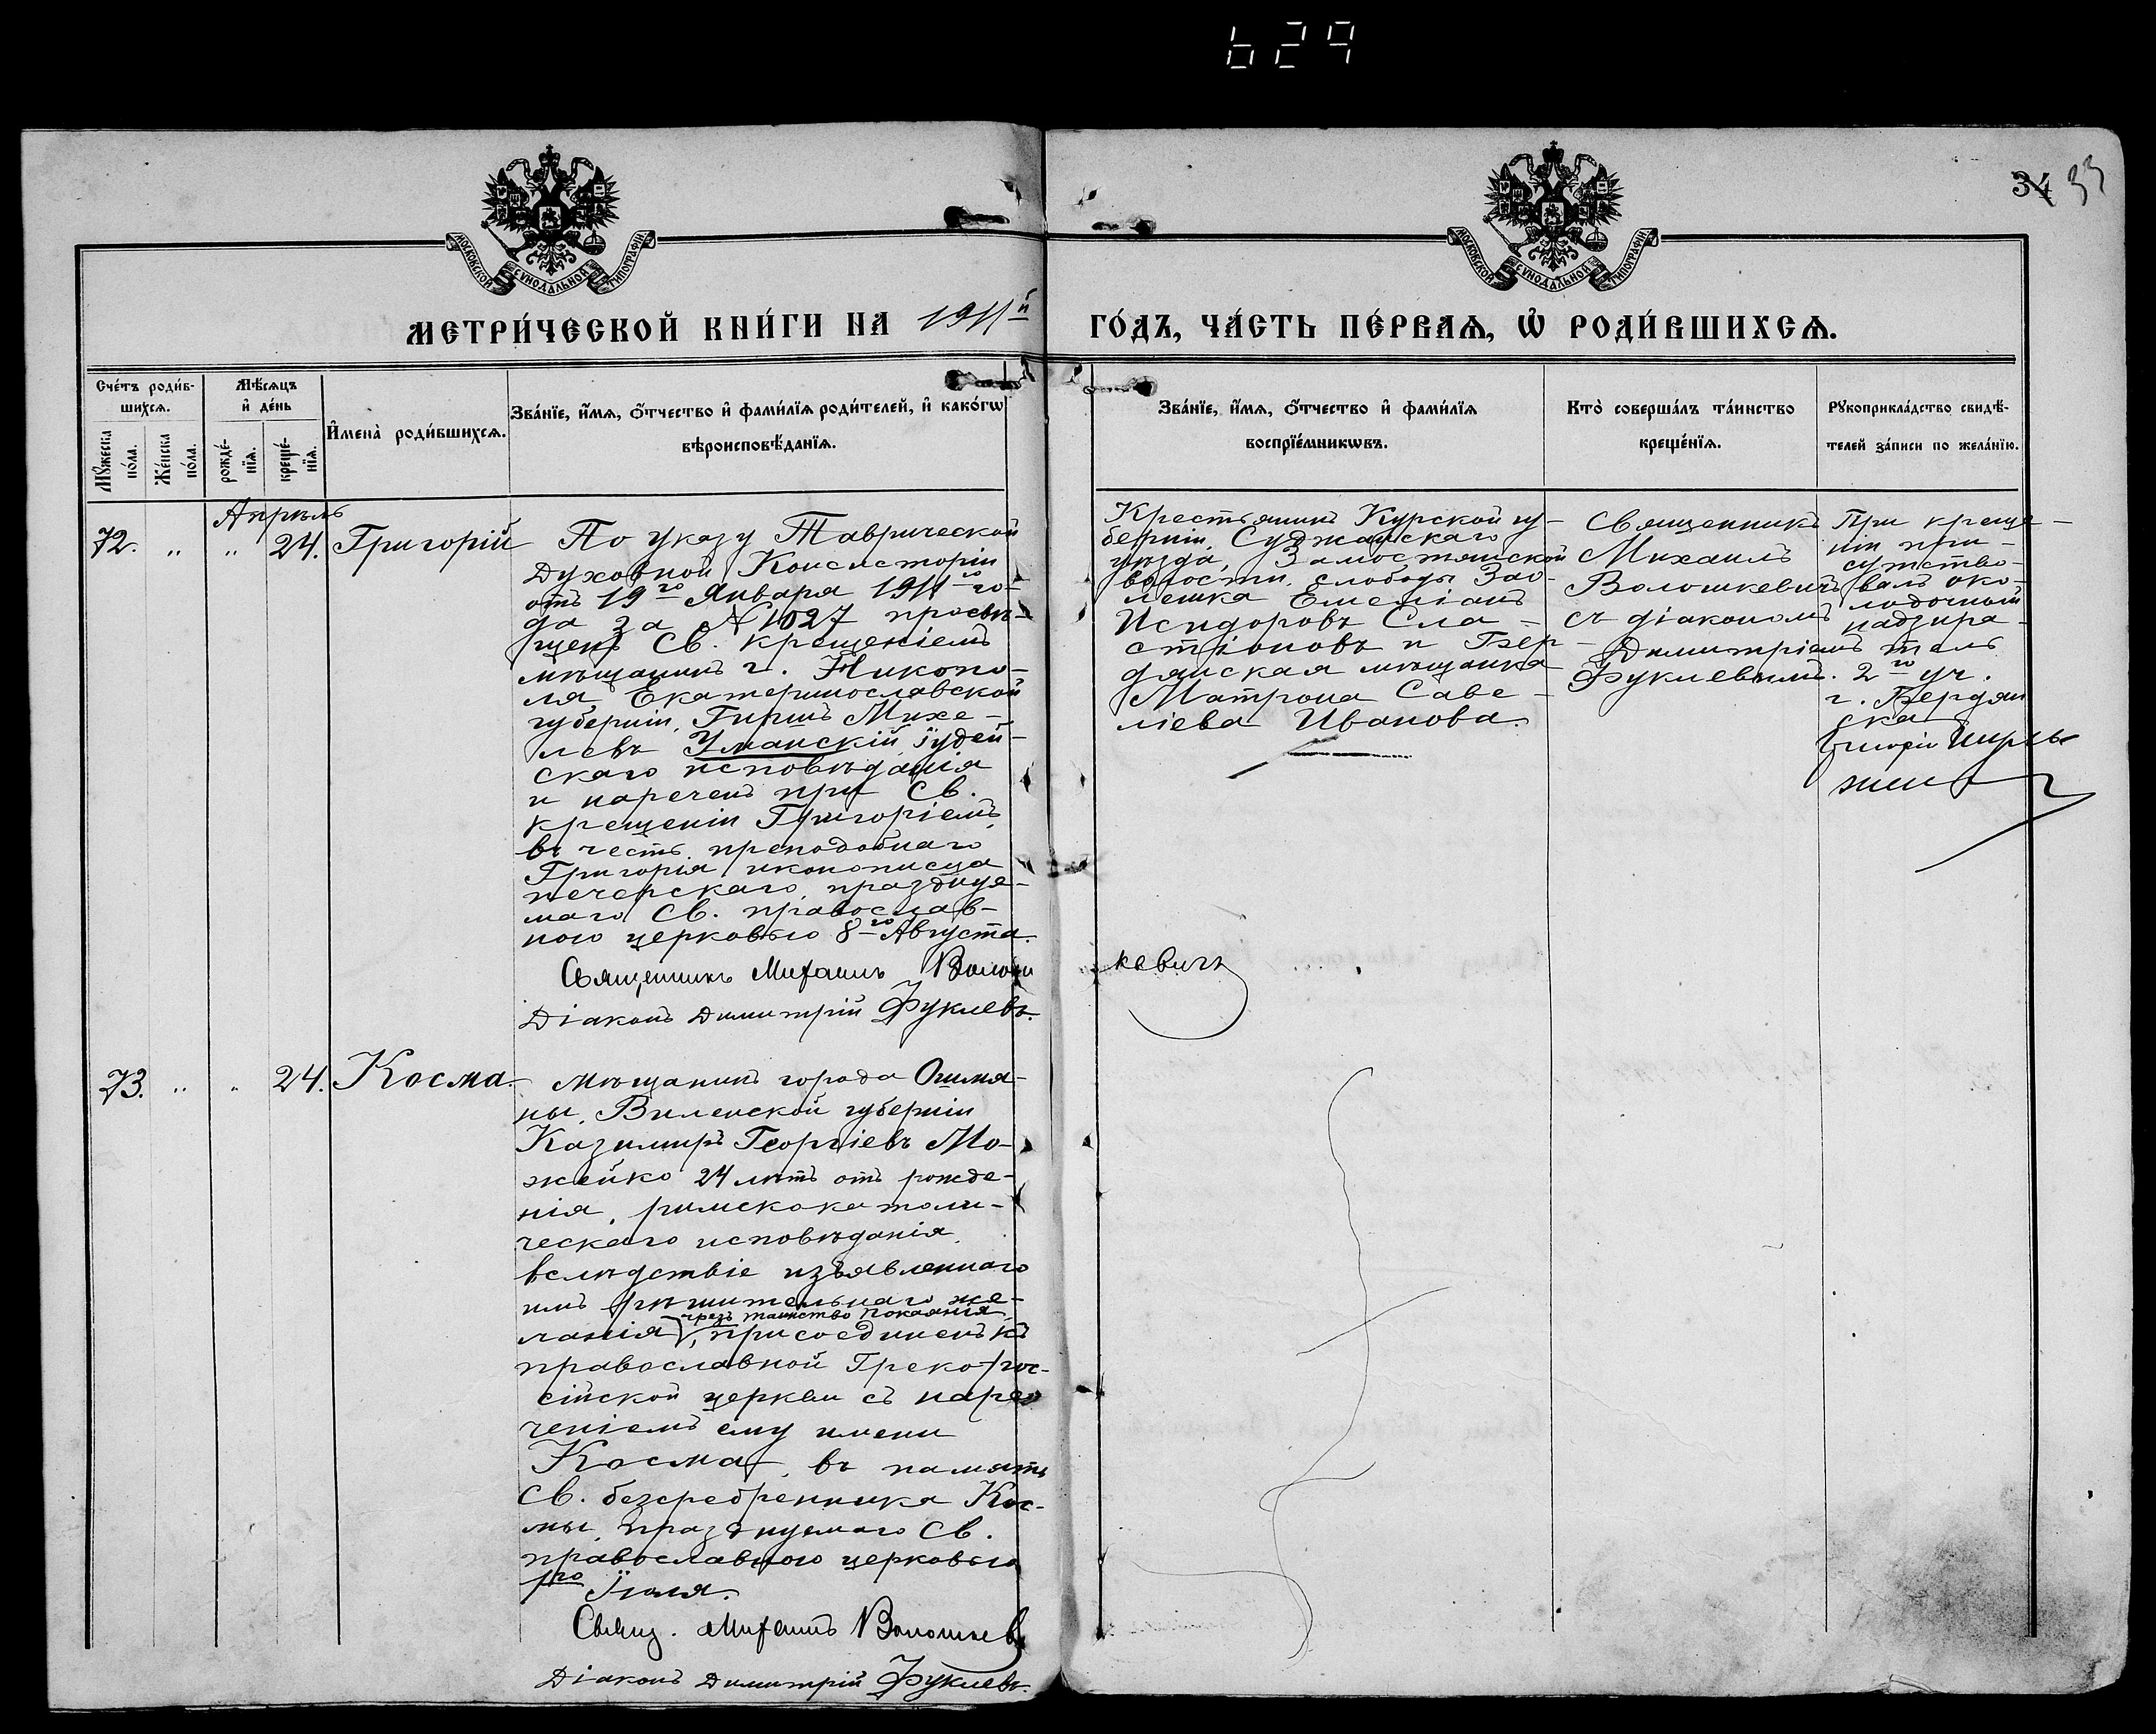 629
34 33
МОСКОВСКОЙ СѴНОДАЛЬНОЙ ТИПОГРАФІИ
МОСКОВСКОЙ СѴНОДАЛЬНОЙ ТИПОГРАФІИ
МЕТРИ́ЧЕСКОЙ КНИ́ГИ НА 1911й ГО́ДЪ, ЧА́СТЬ ПЕ́РВАѦ, Ѡ҆ РОДИ́ВШИХСѦ.
Сче́тъ роди́в-
шихсѧ.
Мѣ́сѧцъ
и҆ де́нь
Мꙋ́жеска
по́ла.
Же́нска
по́ла.
рожде́-
нїѧ.
креще́-
нїѧ.
И҆мена̀ роди́вшихсѧ.
Зва́нїе, и҆́мѧ, ѻ҆́тчество и҆ фами́лїѧ роди́телей, и҆ како́гѡ
вѣроисповѣ́данїѧ.
Зва́нїе, и҆́мѧ, ѻ҆́тчество и҆ фами́лїѧ
воспрїе́мникѡвъ.
Кто̀ соверша́лъ та́инство
креще́нїѧ.
Рꙋкоприкла́дство свидѣ́-
телей за́писи по жела́нїю.
Апрѣль
72. „ „ 24. Григорій
По указу Таврической
Духовной Консисторіи
отъ 19го Января 1911го го-
да за №1027 просвѣ-
щенъ Св. крещеніемъ
мѣщанинъ г. Никопо-
ля, Екатеринославской
губерніи, Гиршъ Михе-
левъ Уманскій, іудей-
скаго исповѣданія
и нареченъ при Св.
крещеніи Григоріемъ,
въ честь преподобнаго
Григорія, иконописца
печерскаго, празднуе-
маго Св. православ-
ною церковью 8го Августа.
Священникъ Михаилъ Волошкевичъ
Діаконъ Димитрій Фуклевъ.
Крестьянинъ Курской гу-
берніи, Суджанскаго
уѣзда, Замостянской
волости, слободы Зао-
лешка Емеліанъ
Исидоровъ Сла-
стіоновъ и Бер-
дянская мѣщанка
Матрона Саве-
ліева Иванова.
Священникъ
Михаилъ
Волошкевичъ
съ діакономъ
Димитріемъ
Фуклевымъ.
При креще-
ніи при-
сутство-
валъ око-
лодочный
надзира-
тель
2го уч.
г. Бердян
ска
73. „ „ 24. Косма.
Мѣщанинъ города Ошмя-
ны, Виленской губерніи
Казимиръ Георгіевъ Мо-
жейко 24 лѣтъ отъ рожде-
нія, римскокатоли-
ческаго исповѣданія,
вслѣдствіе изъявленнаго
имъ рѣшительнаго же-
чрезъ таинство покаянія
ланія, присоединенъ къ
православной Греко-рос-
сійской церкви съ наре-
ченіемъ ему имени
Косма, въ память
Св. безсребренника Кос-
мы, празднуемаго Св.
православною церковью
1го Іюля.
Свящ. Михаилъ Волошкев
Діаконъ Димитрій Фуклевъ.